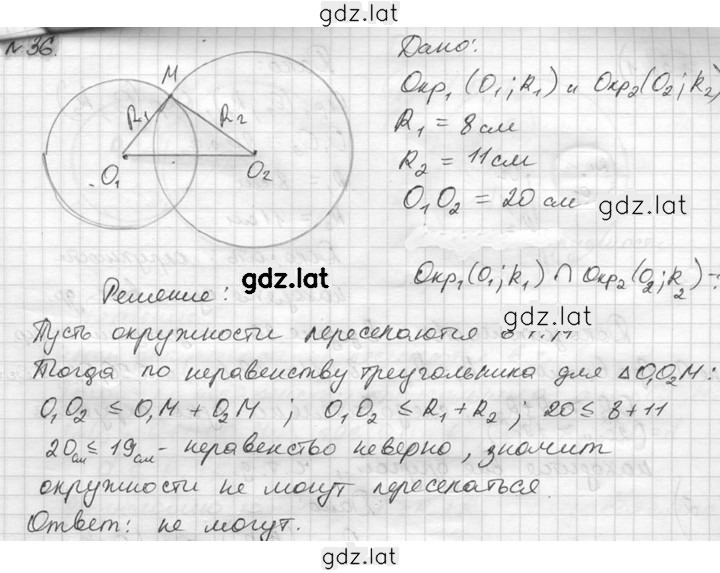 gdz.lat
№ 36.
Дано:
M
Окр₁ (O₁; R₁) и Окр₂(O₂; R₂)
R₁ R₂
R₁ = 8 см
R₂ = 11 см
O₁ O₂
O₁O₂ = 20 см
gdz.lat
gdz.lat
Окр₁(O₁; R₁) ∩ Окр₂(O₂; R₂) - ?
Решение:
Пусть окружности пересекаются в т. M
Тогда по неравенству треугольника для △O₁O₂M:
O₁O₂ ≤ O₁M + O₂M ; O₁O₂ ≤ R₁ + R₂ ; 20 ≤ 8 + 11
20см ≤ 19см - неравенство неверно, значит
окружности не могут пересекаться.
Ответ: не могут.
gdz.lat